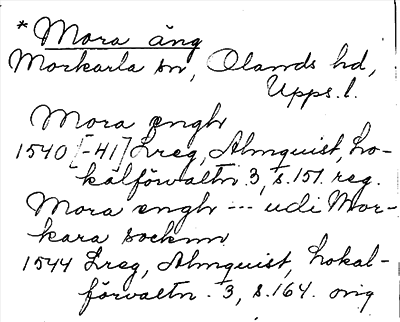 * Mora äng
Morkarla sn, Olands hd,
Upps. l.
Mora engh
1540 [-41] Lreg, Almquist, Lo-
kalförvaltn 3, s. 151. reg.
Mora engh --- udi Mor-
kara socknn
1544 Lreg, Almquist, Lokal-
förvaltn. 3, s. 164. orig